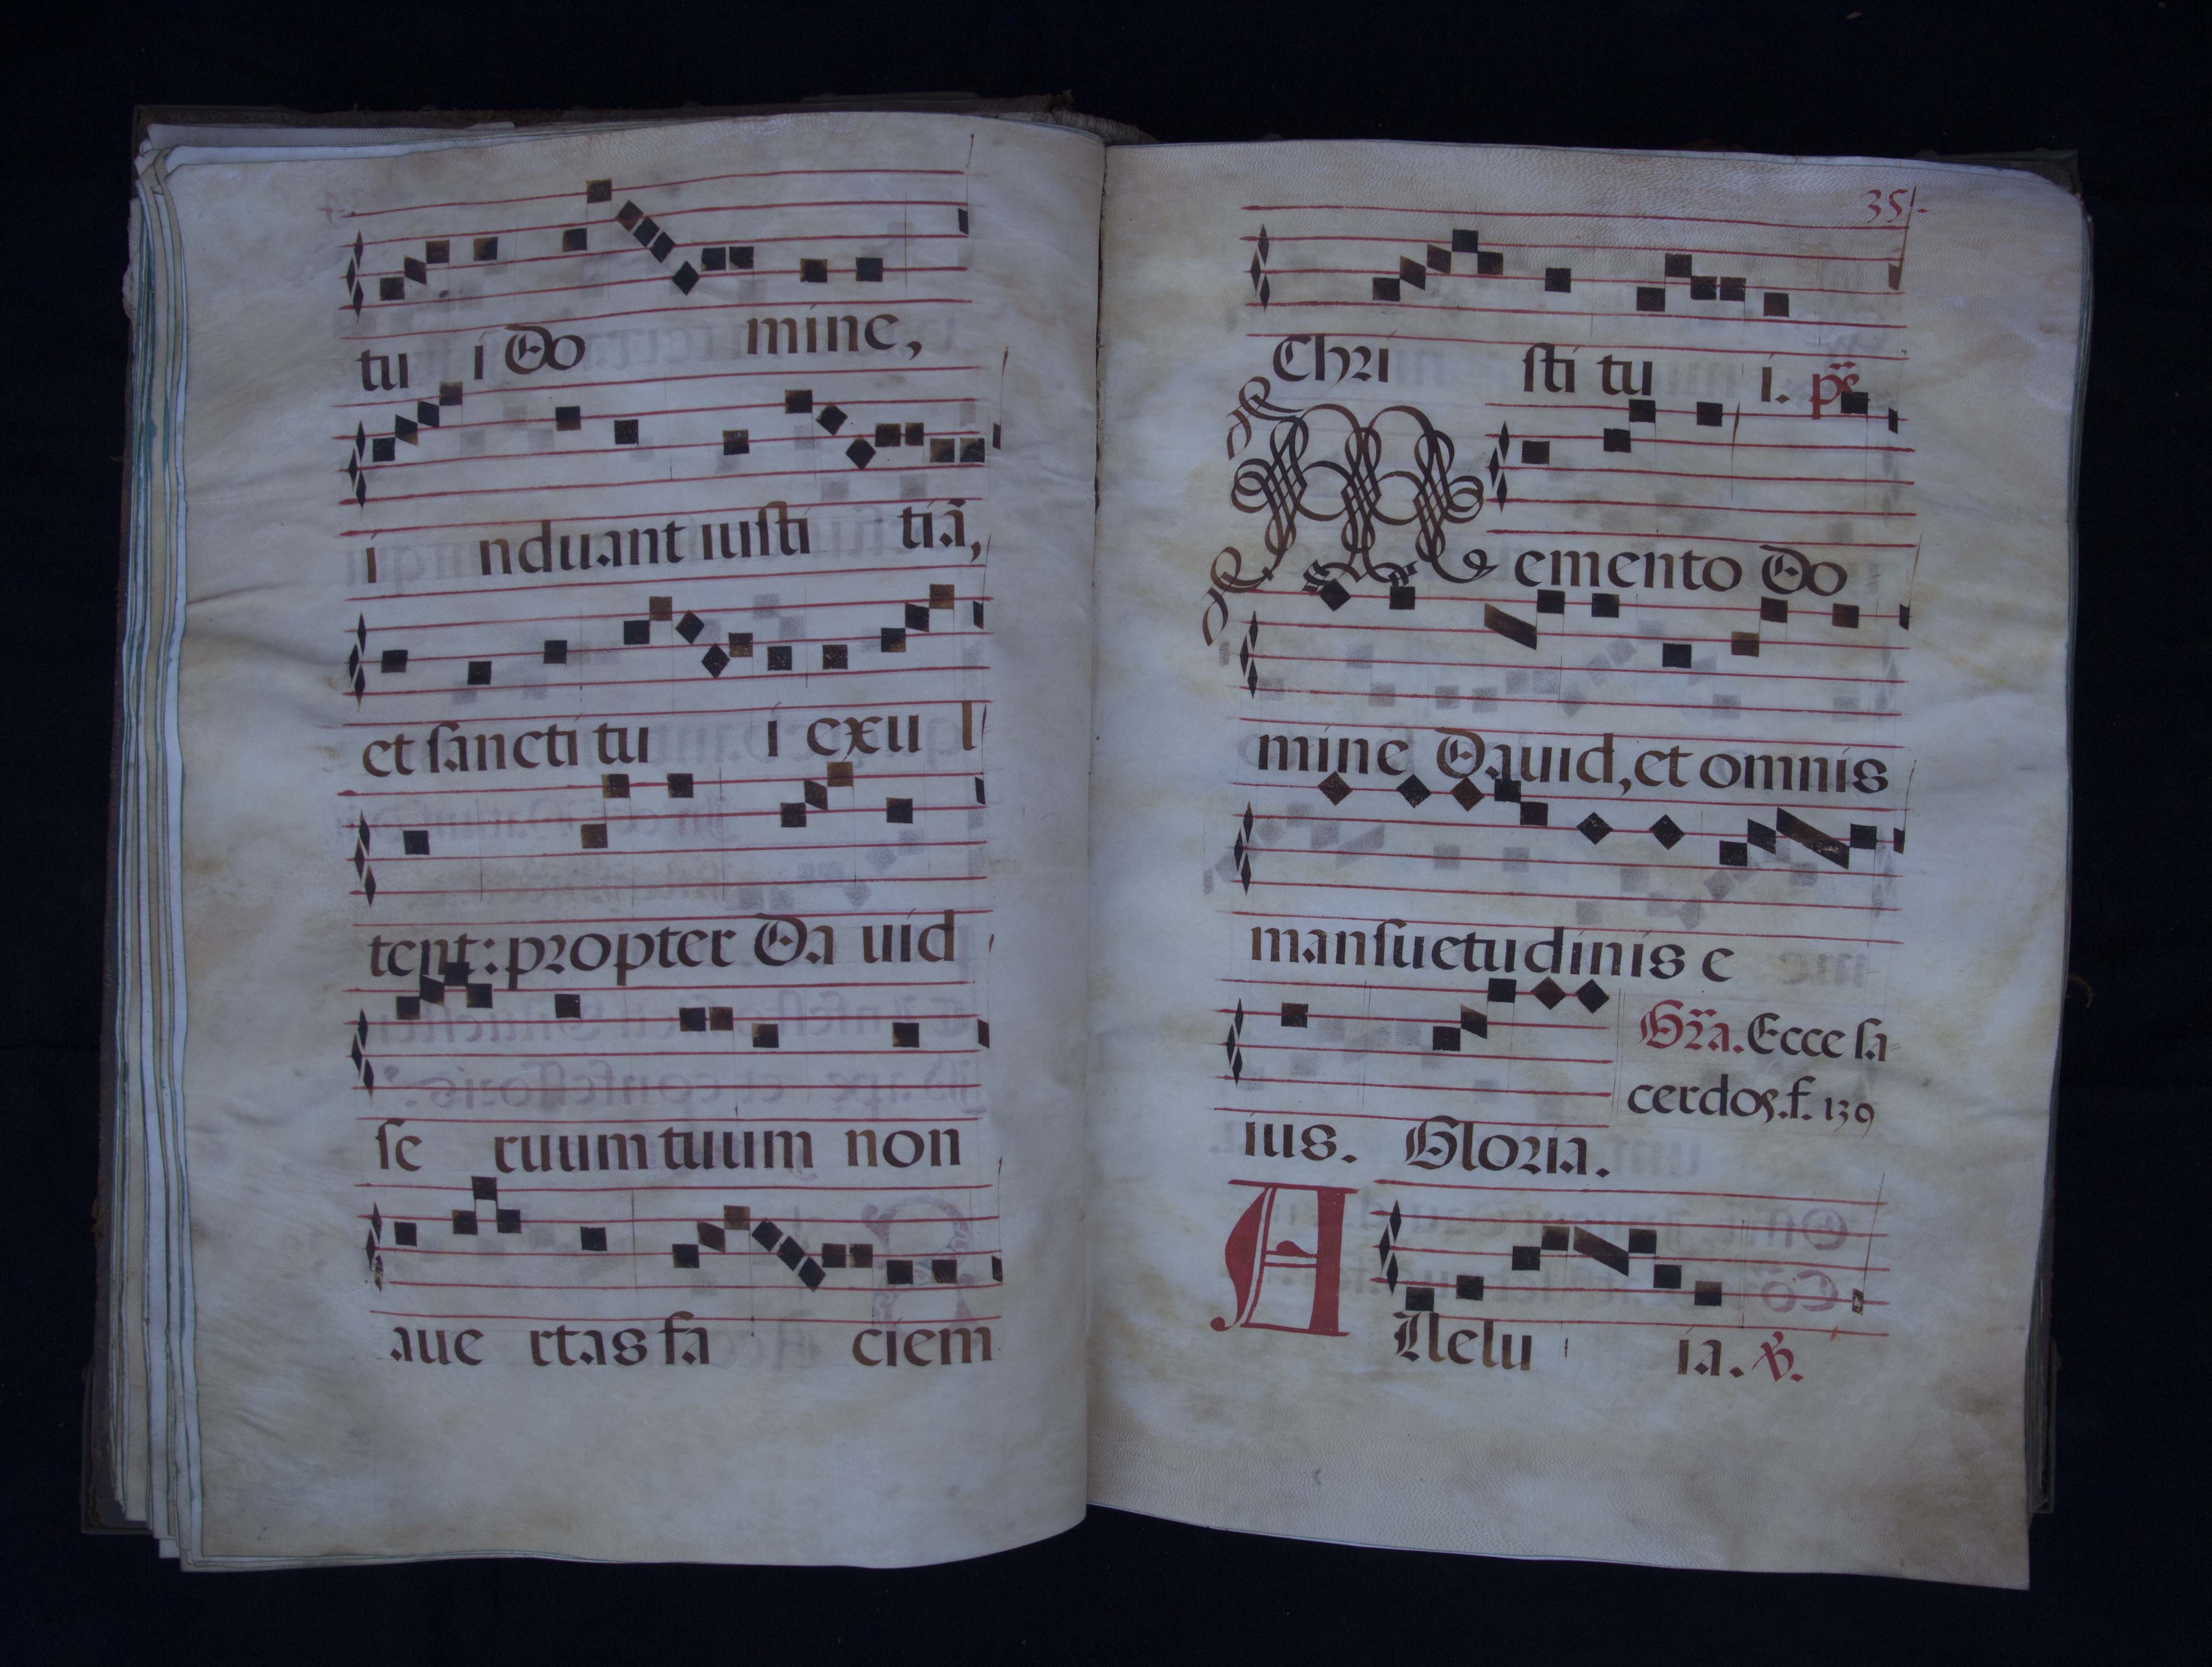 tu i Do mine,
i nduant iusti tiã,
et sancti tu i exu l
tent: propter Da uid
se ruum tuum non
aue rtas fa ciem
35
Chri sti tu i. ps̈
Memento Do
mine Dauid, et omnis
mansuetudinis e
ius. Gloria.
Gra. Ecce sa
cerdos. f. 139
Allelu ia. ℣.